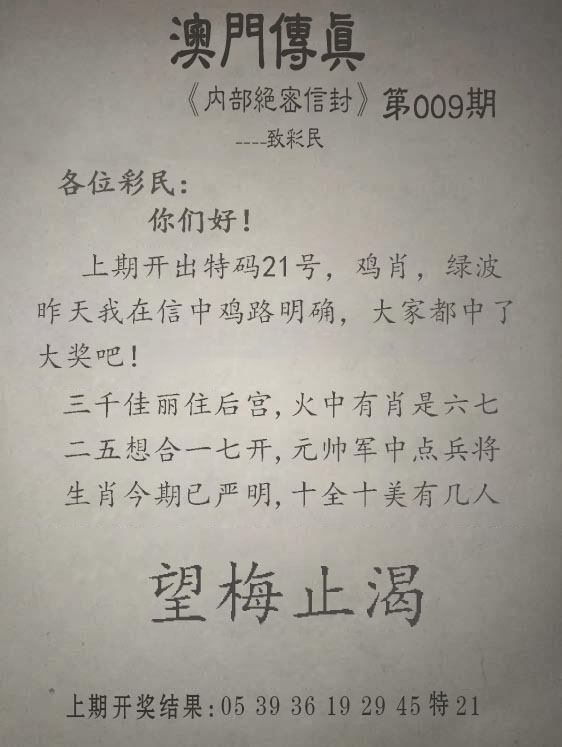 澳門傳真
《内部絕密信封》第009期
----致彩民
各位彩民：
你们好！
上期开出特码21号，鸡肖，绿波
昨天我在信中鸡路明确，大家都中了
大奖吧！
三千佳丽住后宫,火中有肖是六七
二五想合一七开,元帅军中点兵将
生肖今期已严明,十全十美有几人
望梅止渴
上期开奖结果:05 39 36 19 29 45 特 21